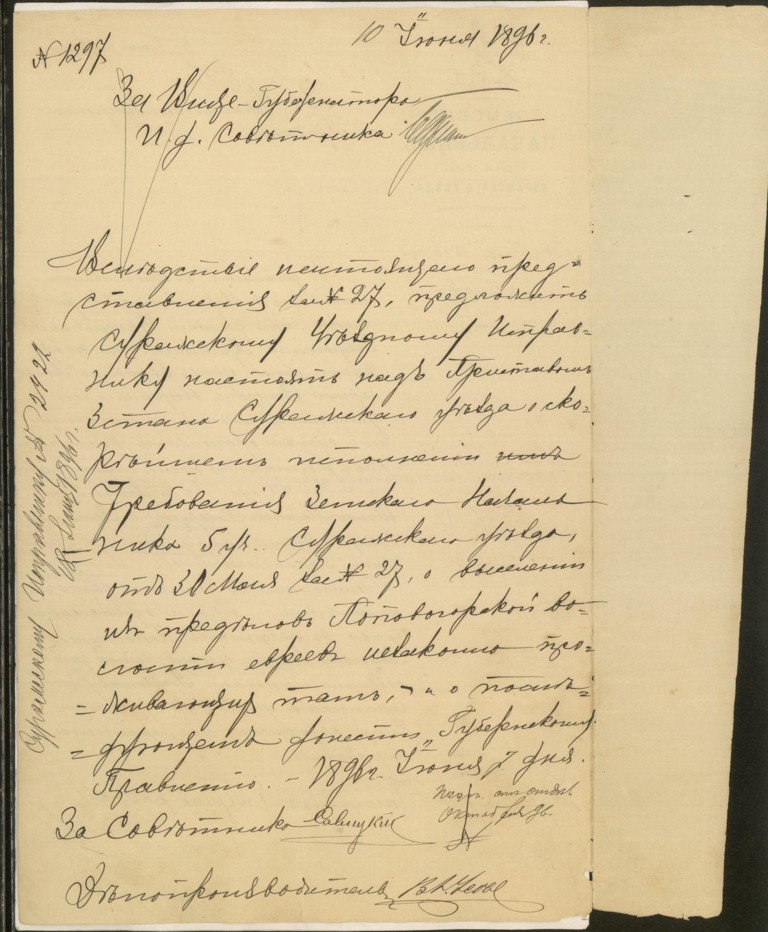 № 1297
10 Іюня 1896 г.
За Вице-Губернатора
И. ф. Совѣтника
Вслѣдствіе настоящаго пред=
ставленія за № 27, предложить
Суражскому Уѣздному Исправ=
нику настоять надъ Приставомъ
3 стана Суражскаго уѣзда о ско=
рѣйшемъ исполненіи
Требованія Земскаго Началь
ника 5 уч. Суражскаго уѣзда,
отъ 30 Мая за № 27, о выселеніи
изъ предѣловъ Поповогорской во=
лости евреевъ незаконно про=
=живающихъ тамъ, и о послѣ=
=дующемъ донести Губернскому
Правленію. – 1896 г. Іюня 7 дня.
За Совѣтника Савицкій
Дѣлопроизводитель
Суражскому Исправнику № 2922
1896 г.